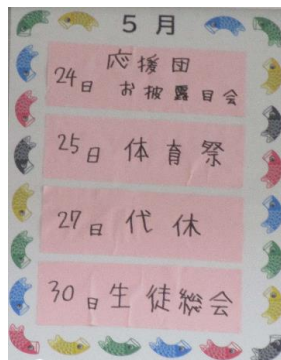 5月
応援団
24日 お披露目会
25日 体育祭
27日 代休
30日 生徒総会